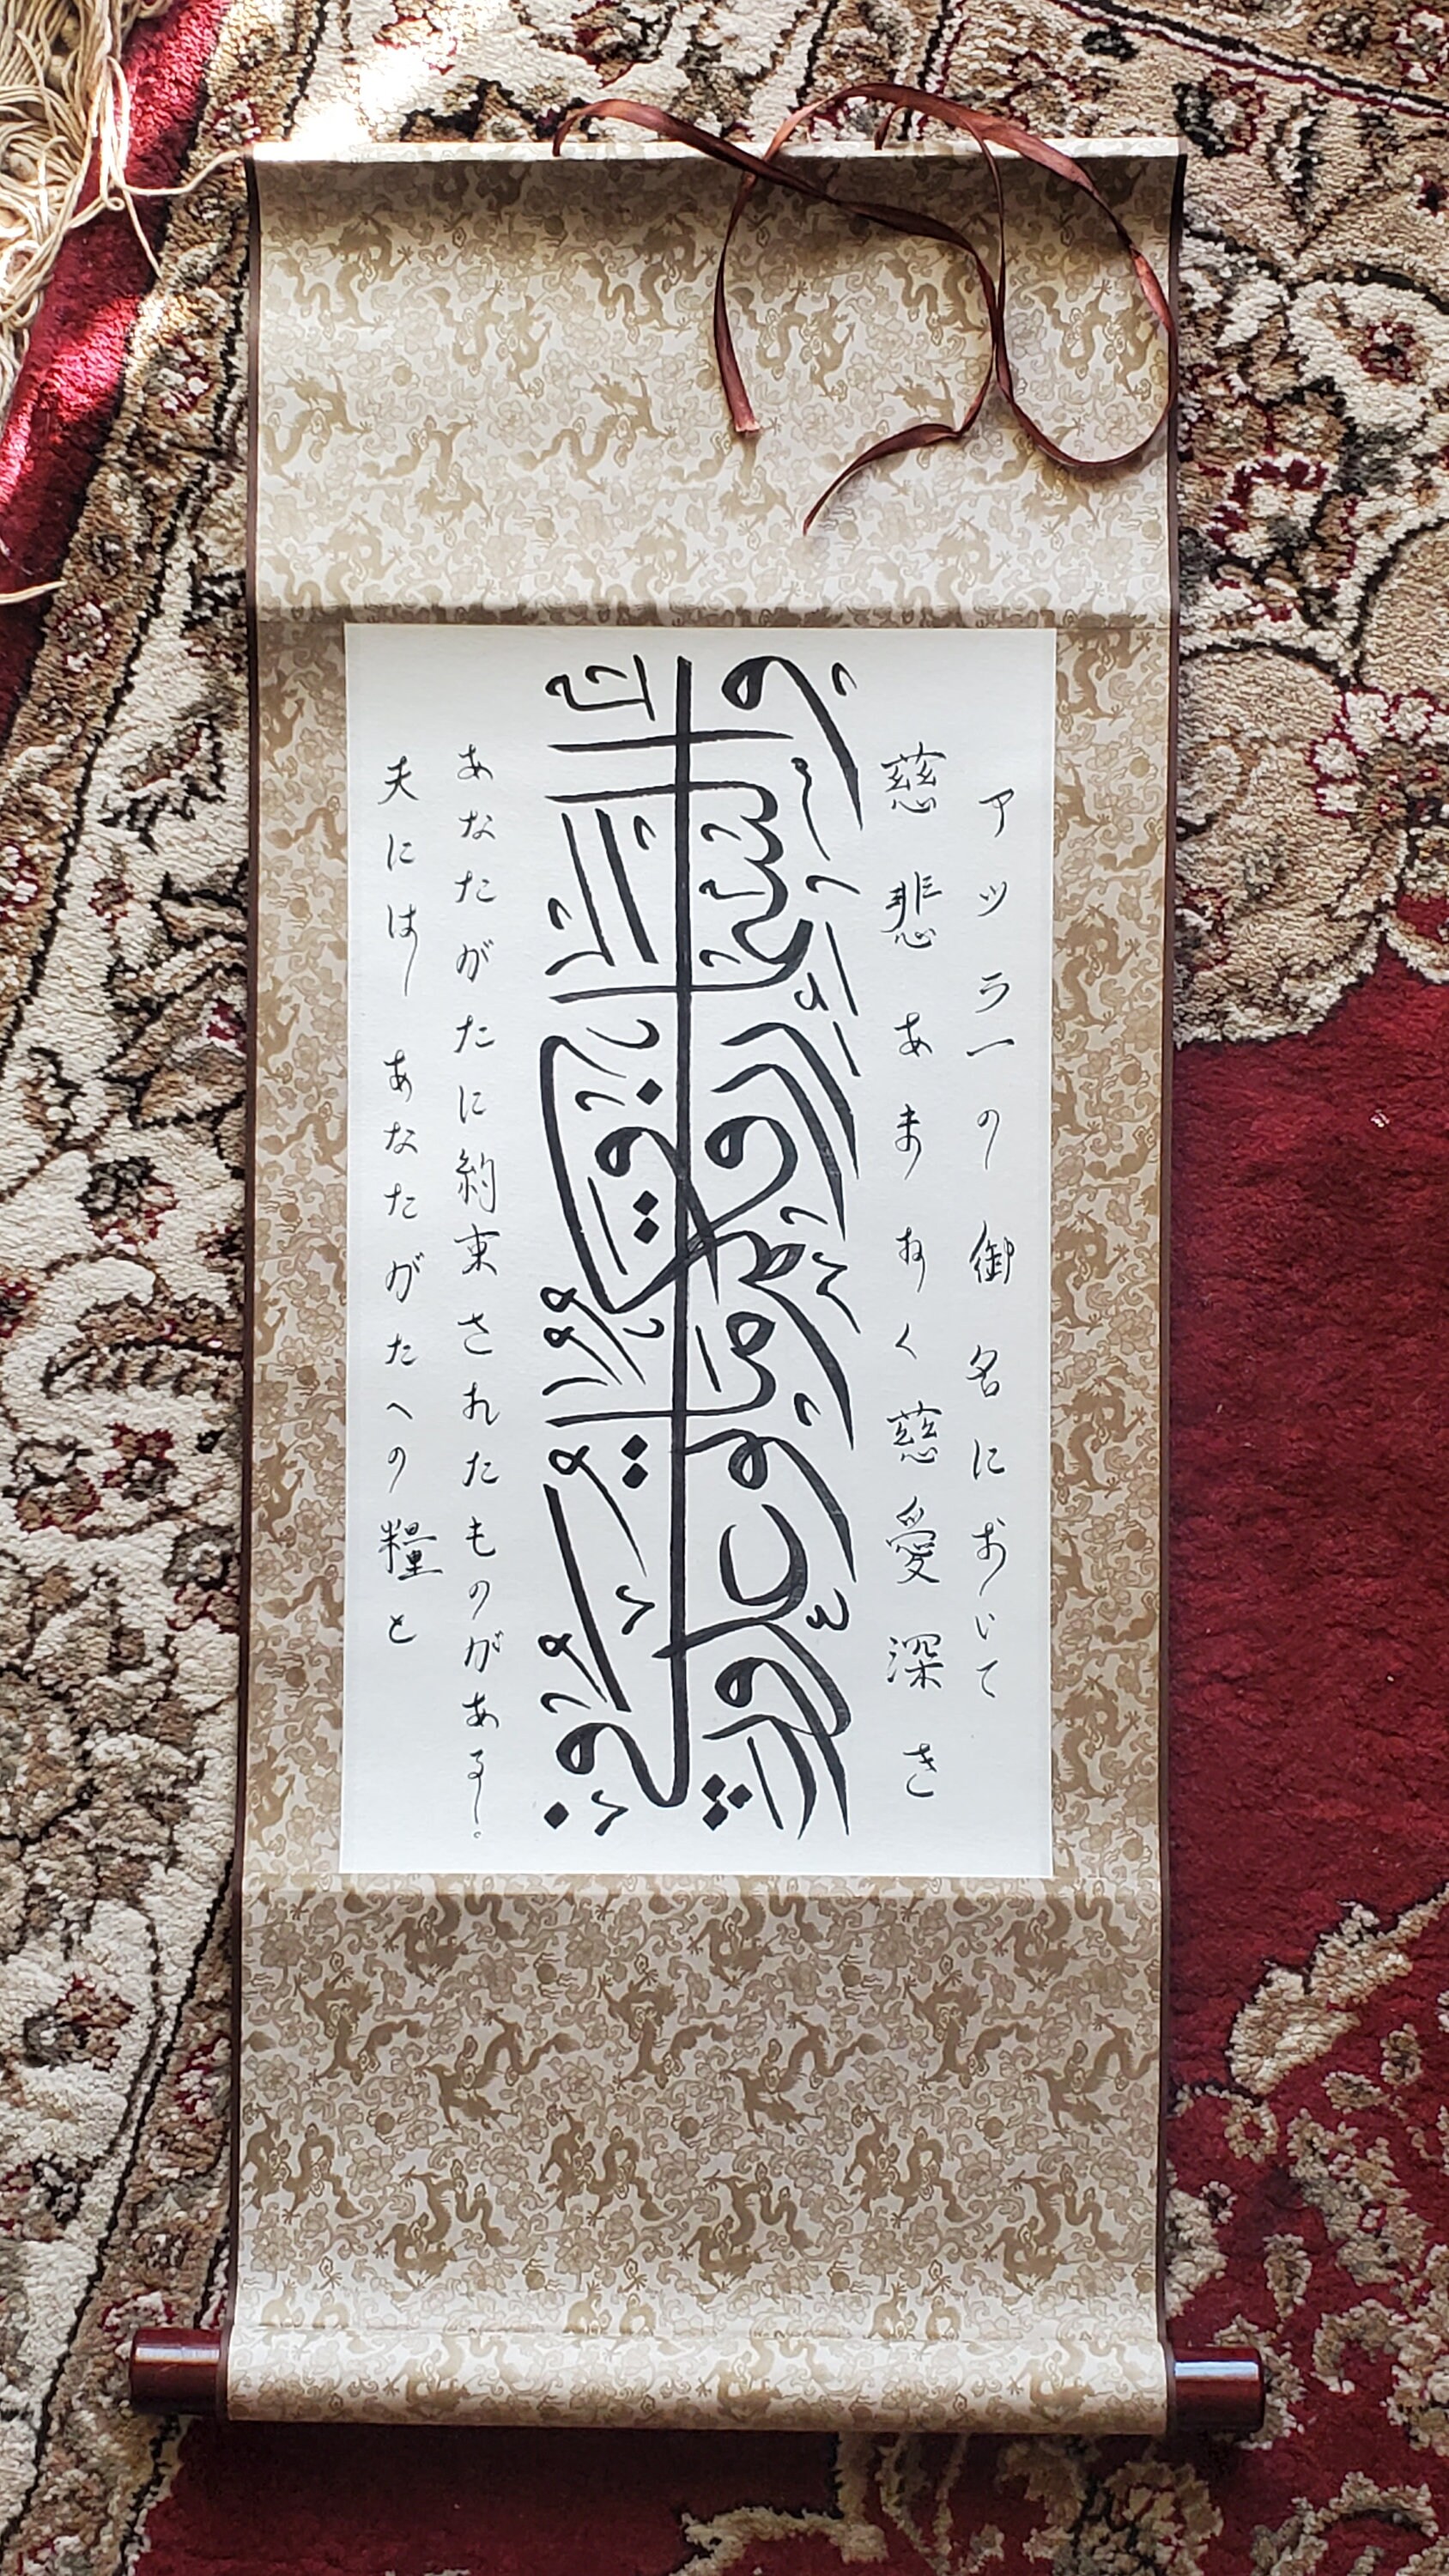 慈悲あまねく慈愛深き
アッラーの御名において
وفي السماء رزقكم وما توعدون
天には あなたがたへの糧と
あなたがたに約束されたものがある。